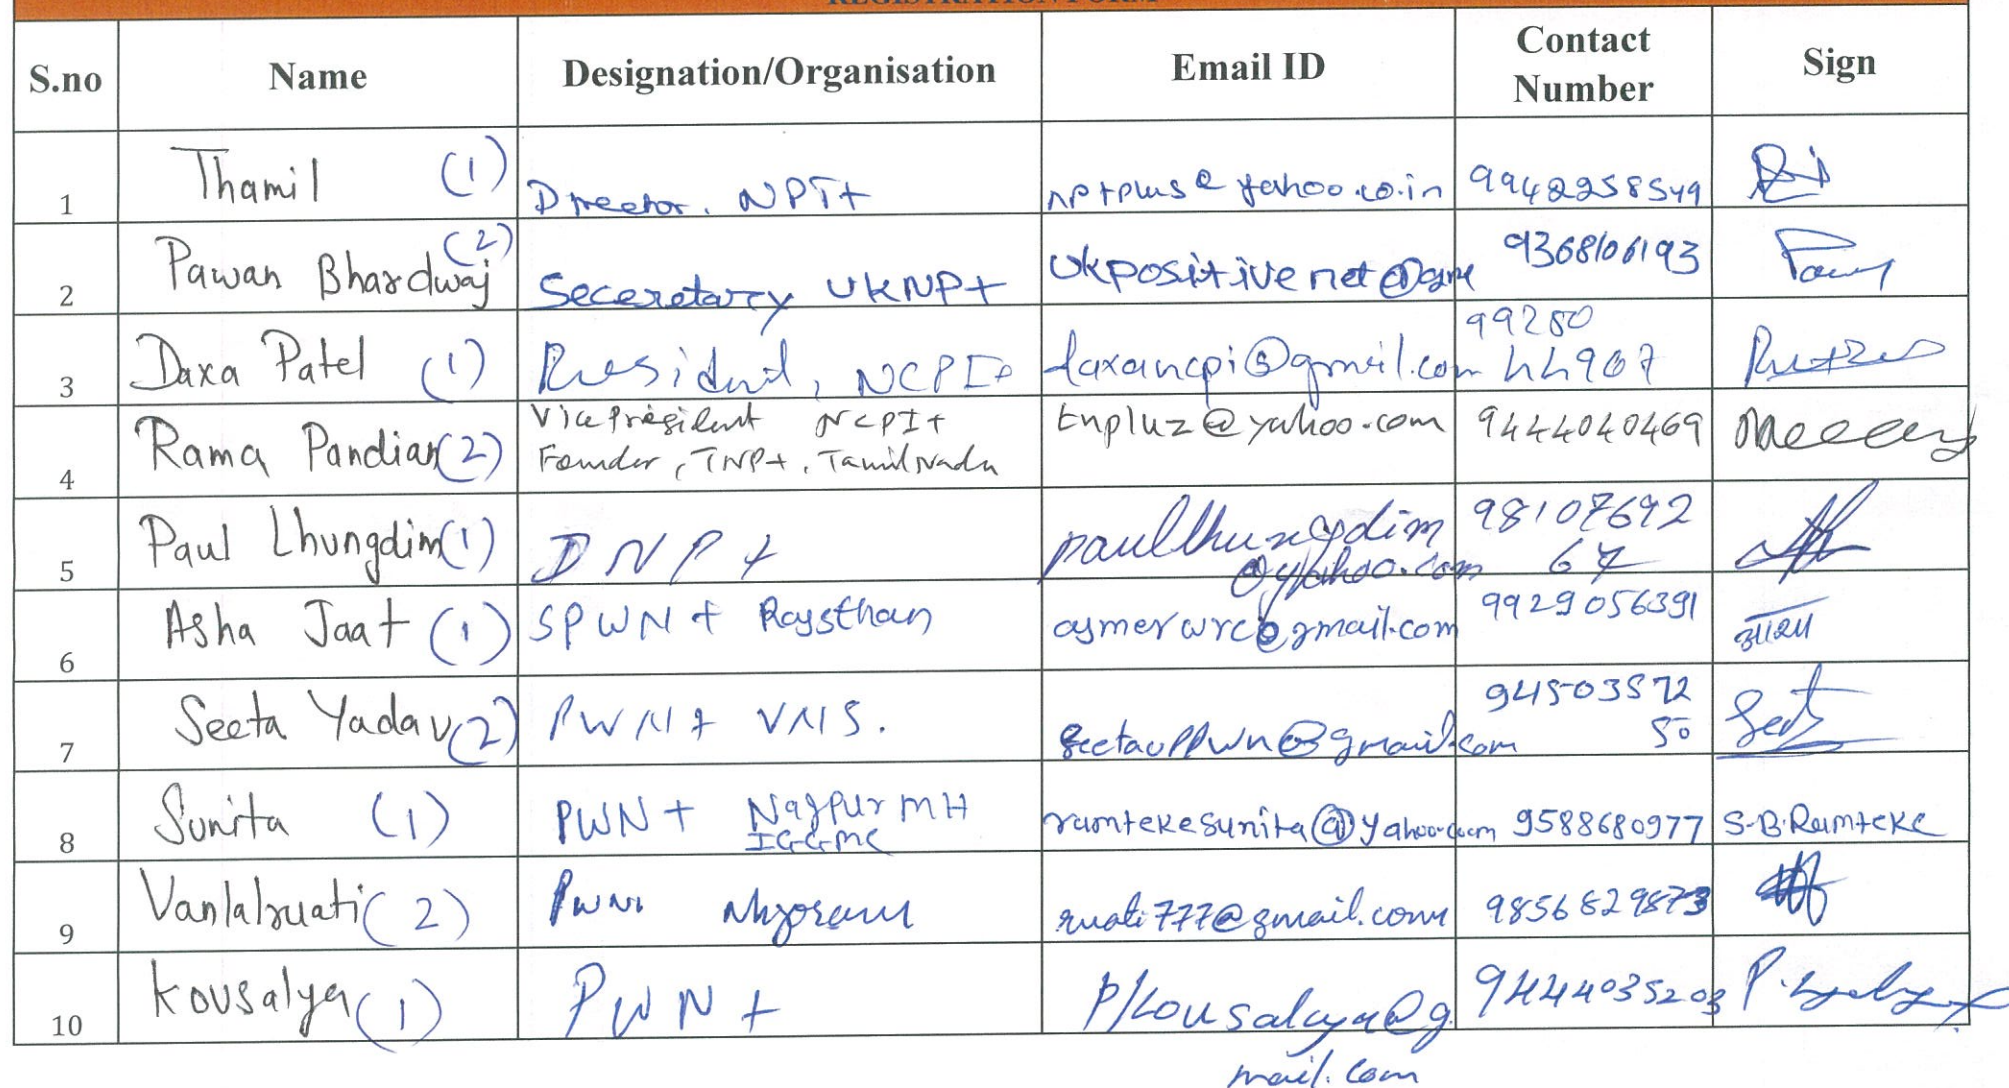 REGISTRATION FORM
S.no Name Designation/Organisation Email ID Contact Number Sign
1 Thamil (1) Director. NPT+ nptplus@yahoo.co.in 9942258549
2 Pawan Bhardwaj (2) Seceretary UKNP+ Ukpositivenet@gm 9368106193
3 Daxa Patel (1) President, NCPI+ daxancpi@gmail.com 99280 44907
4 Rama Pandian (2) Vice President NCPI+ Founder, TNP+, Tamil Nadu tnpluz@yahoo.com 9444040469
5 Paul Lhungdim (1) DNP+ paullhungdim@yahoo.com 98107692
6 Asha Jaat (1) SPWN+ Rajsthan ajmerwrc@gmail.com 9929056391 आशा
7 Seeta Yadav (2) PWN+ VNS. seetauppwn@gmail.com 94503572 50
8 Sunita (1) PWN+ Nagpur MH IGGMC ramtekesunita@yahoo.com 9588680977 S.B.Ramteke
9 Vanlalruati (2) Mizoram ruati777@gmail.com 9856829873
10 Kousalya (1) PWN+ pkousalya@gmail.com 9444035203